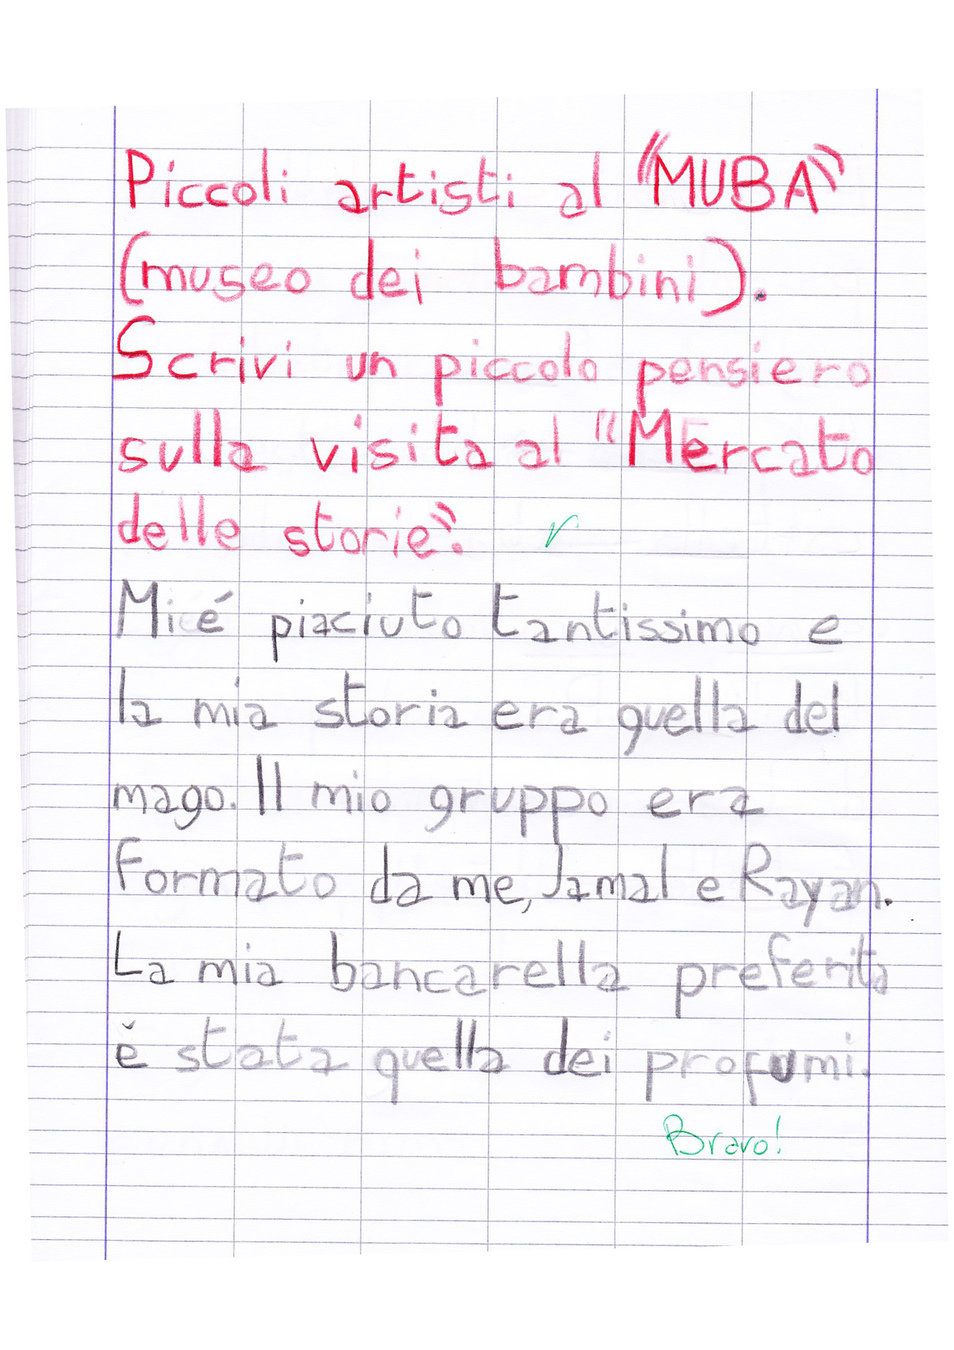 Piccoli artisti al "MUBA"
(museo dei bambini).
Scrivi un piccolo pensiero
sulla visita al "Mercato
delle storie".
Mi é piaciuto tantissimo e
la mia storia era quella del
mago. Il mio gruppo era
formato da me, Jamal e Rayan.
La mia bancarella preferita
è stata quella dei profumi.
Bravo!